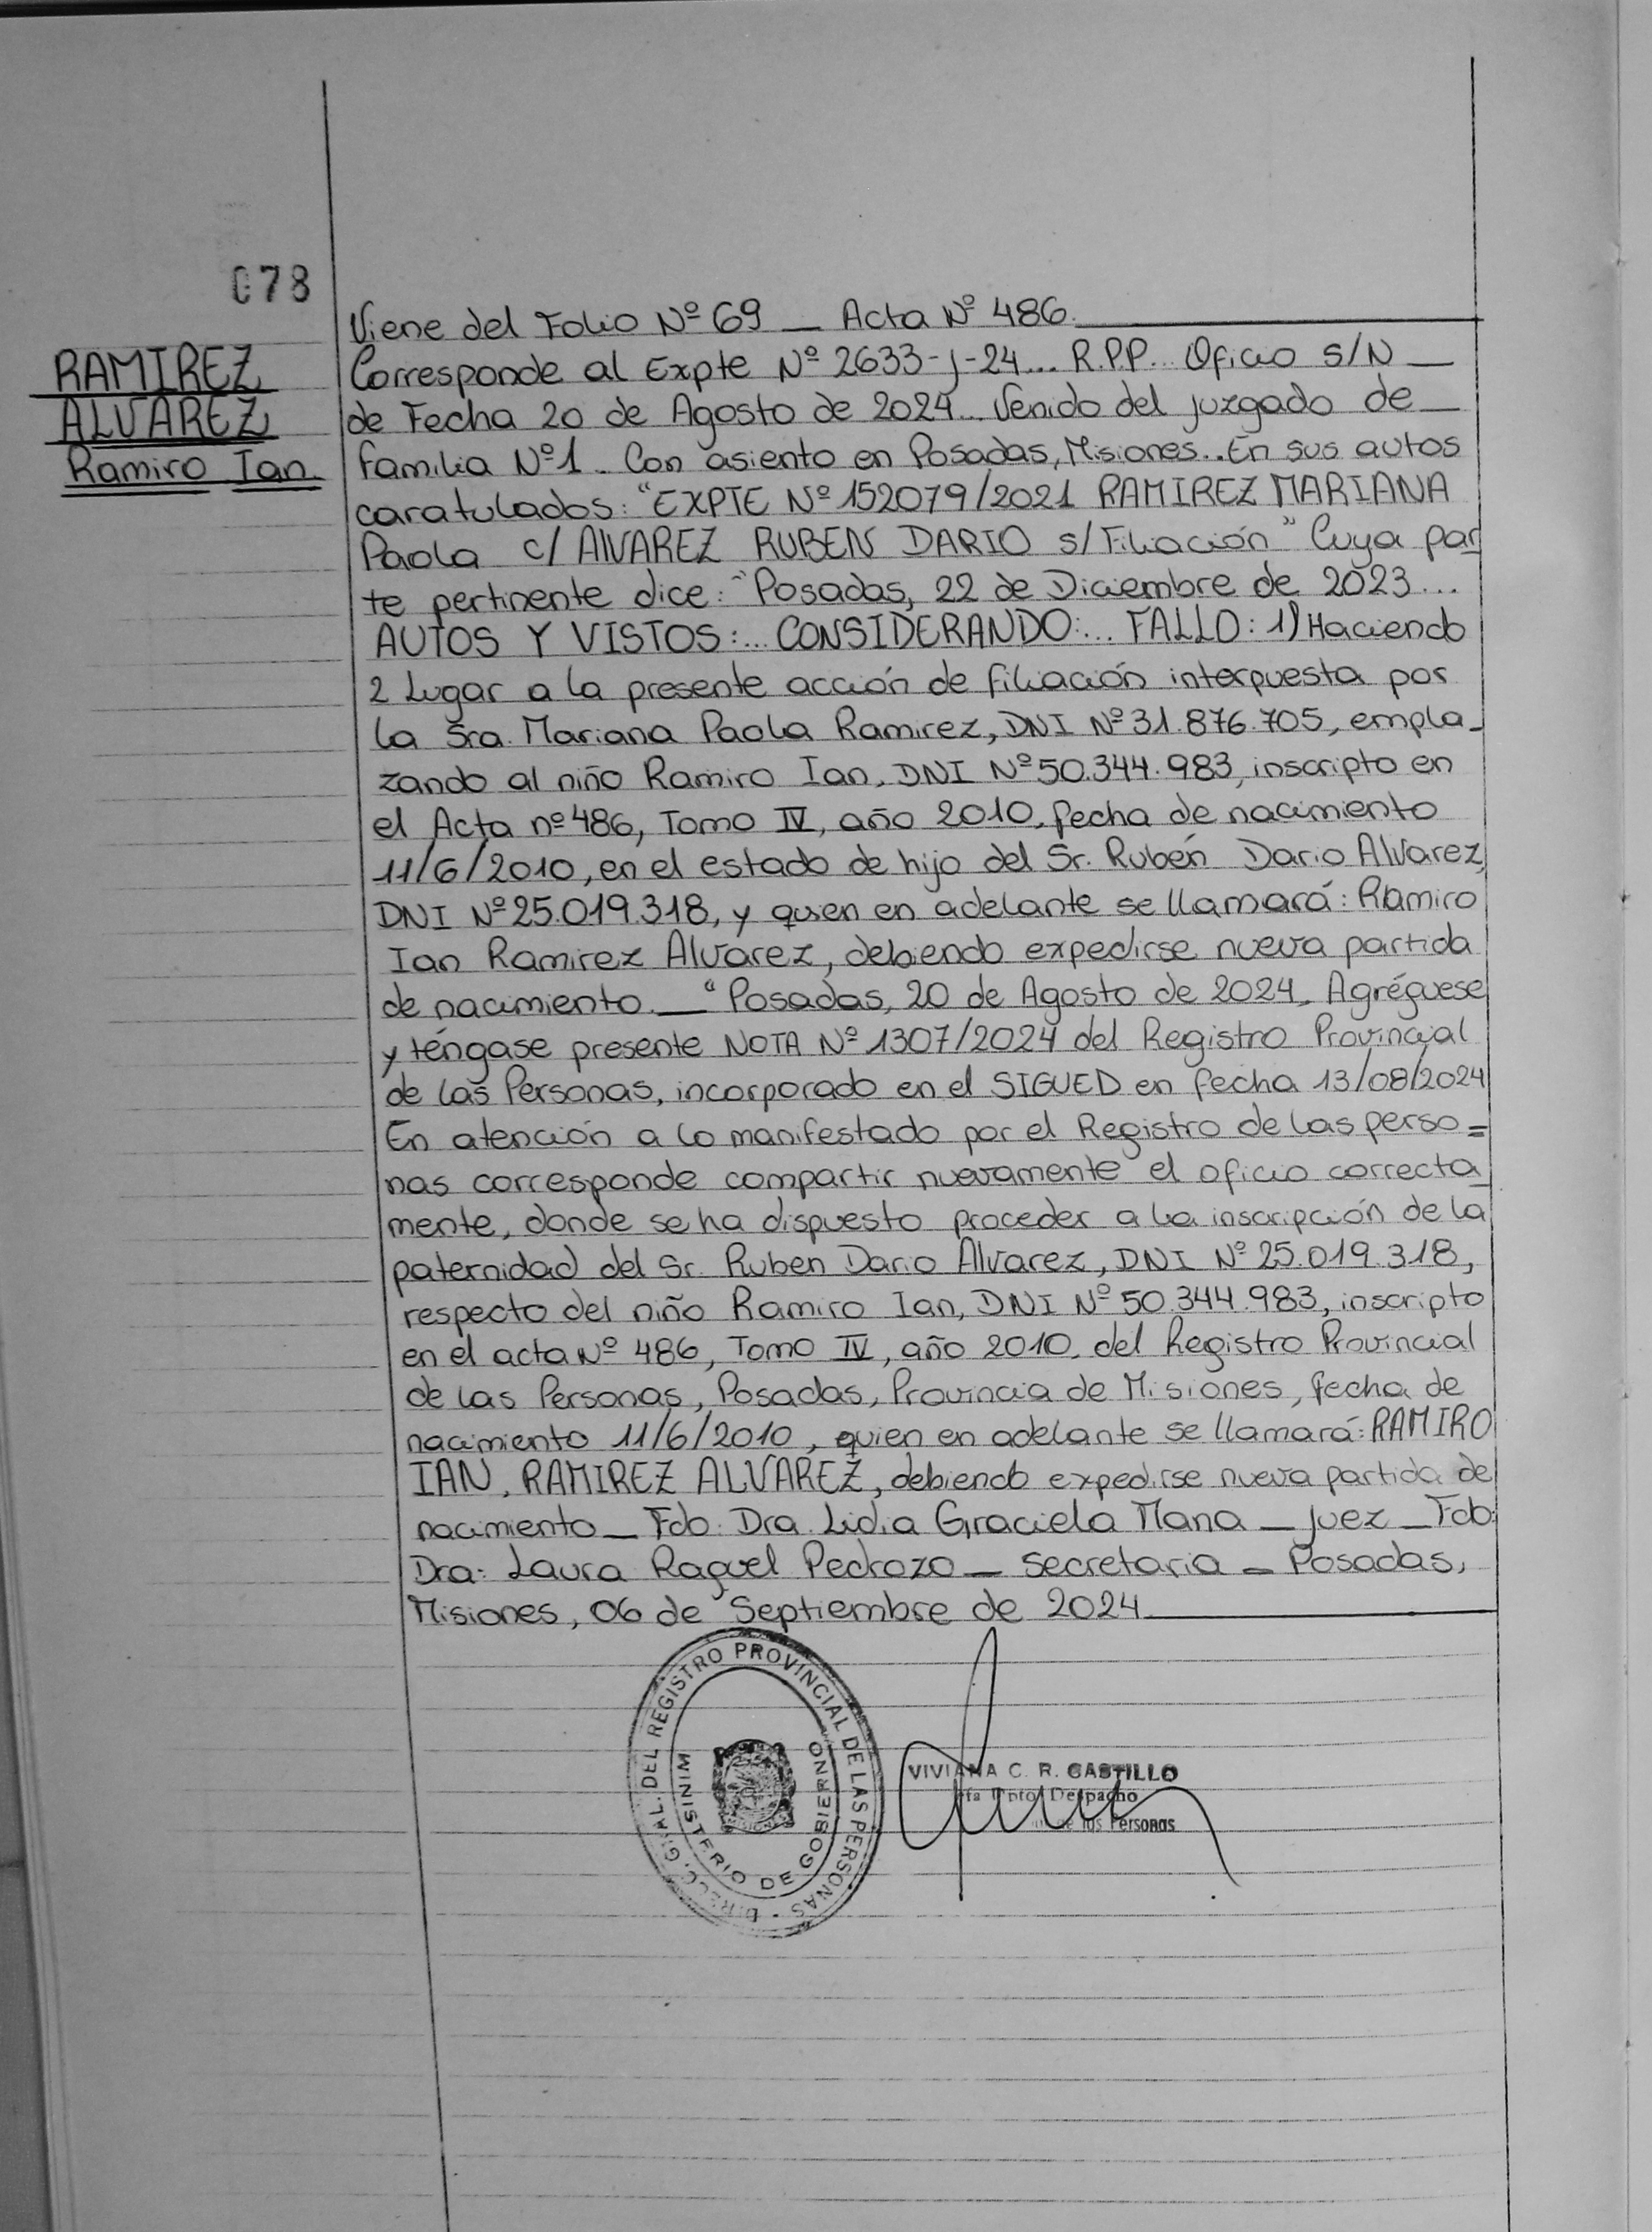 078
RAMIREZ
ALVAREZ
Ramiro Ian.
Viene del Folio Nº 69 _ Acta Nº 486.
Corresponde al Expte Nº 2633-j-24... R.P.P... Oficio S/N _
de Fecha 20 de Agosto de 2024... Venido del juzgado de _
familia Nº1. Con asiento en Posadas, Misiones... En sus autos
caratulados: "EXPTE Nº 152079/2021 RAMIREZ MARIANA
Paola c/ ALVAREZ RUBEN DARIO s/ Filiación" Cuya par
te pertinente dice: "Posadas, 22 de Diciembre de 2023...
AUTOS Y VISTOS:... CONSIDERANDO:... FALLO: 1) Haciendo
2 Lugar a la presente acción de filiación interpuesta por
la Sra. Mariana Paola Ramirez, DNI Nº 31.876.705, empla_
zando al niño Ramiro Ian, DNI Nº 50.344.983, inscripto en
el Acta nº 486, Tomo IV, año 2010, fecha de nacimiento
11/6/2010, en el estado de hijo del Sr. Rubén Dario Alvarez,
DNI Nº 25.019.318, y quien en adelante se llamará: Ramiro
Ian Ramirez Alvarez, debiendo expedirse nueva partida
de nacimiento. _ "Posadas, 20 de Agosto de 2024. Agréguese
y téngase presente NOTA Nº 1307/2024 del Registro Provincial
de las Personas, incorporado en el SIGED en fecha 13/08/2024
En atención a lo manifestado por el Registro de las perso=
nas corresponde compartir nuevamente el oficio correcta
mente, donde se ha dispuesto proceder a la inscripción de la
paternidad del Sr. Ruben Dario Alvarez, DNI Nº 25.019.318,
respecto del niño Ramiro Ian, DNI Nº 50.344.983, inscripto
en el acta Nº 486, Tomo IV, año 2010, del Registro Provincial
de las Personas, Posadas, Provincia de Misiones, fecha de
nacimiento 11/6/2010, quien en adelante se llamará: RAMIRO
IAN, RAMIREZ ALVAREZ, debiendo expedirse nueva partida de
nacimiento _ Fdo. Dra. Lidia Graciela Mana _ juez _ Fdo:
Dra: Laura Raquel Pedrozo _ Secretaria _ Posadas,
Misiones, 06 de Septiembre de 2024
DIRECC. GRAL. DEL REGISTRO PROVINCIAL DE LAS PERSONAS
MINISTERIO DE GOBIERNO
VIVIANA C. R. CASTILLO
Dpto Despacho
de las Personas